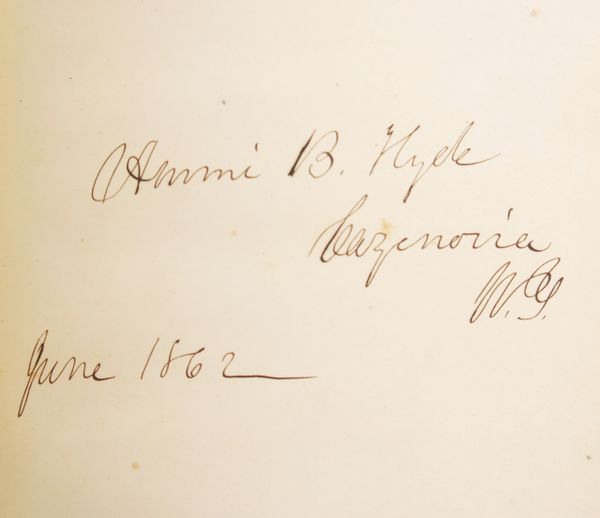 Ammi B. Hyde
Cazenovia
N.Y.
June 1862